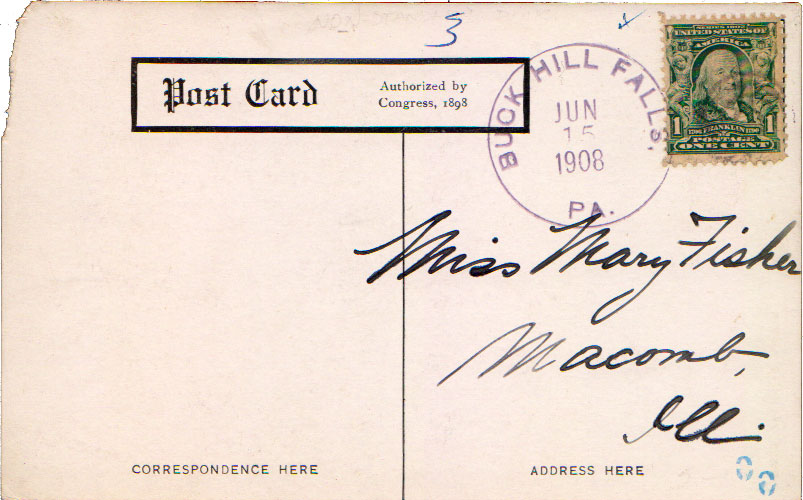 3
Post Card
Authorized by
Congress, 1898
BUCK HILL FALLS,
JUN
15
1908
PA.
SERIES 1902
UNITED STATES OF
AMERICA
1 FRANKLIN 1
POSTAGE
ONE CENT
Miss Mary Fisher
Macomb,
Ill.
CORRESPONDENCE HERE
ADDRESS HERE